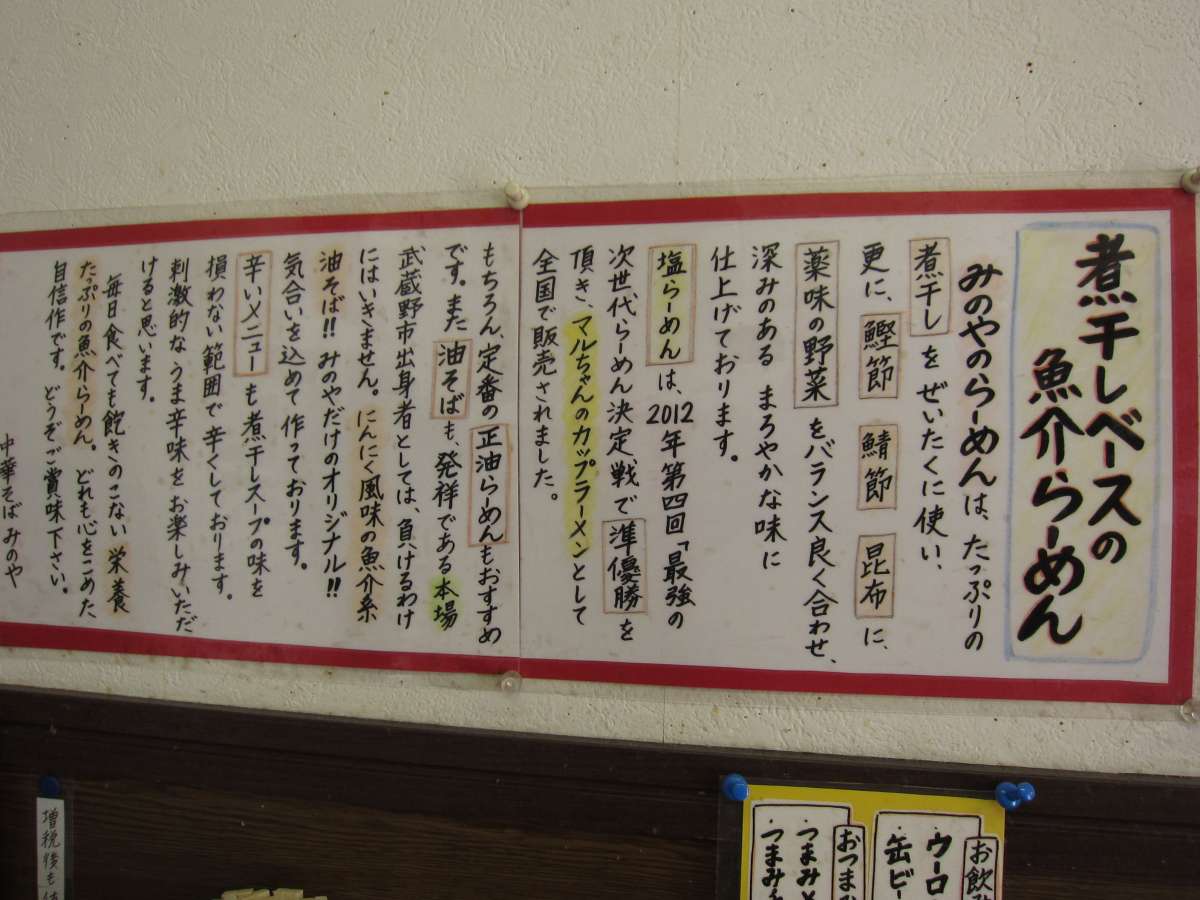 煮干しベースの
魚介らーめん
みのやのらーめんは、たっぷりの
煮干し をぜいたくに使い、
更に、鰹節 鯖節 昆布 に、
薬味の野菜 をバランス良く合わせ、
深みのある まろやかな味に
仕上げております。
塩らーめん は、2012年第四回「最強の
次世代らーめん決定戦で 準優勝 を
頂き、マルちゃんのカップラーメンとして
全国で販売されました。
もちろん、定番の 正油らーめん もおすすめ
です。また 油そば も、発祥である本場
武蔵野市出身者としては、負けるわけ
にはいきません。にんにく風味の魚介系
油そば!! みのやだけのオリジナル!!
気合いを込めて作っております。
辛いメニュー も煮干しスープの味を
損わない範囲で辛くしております。
刺激的なうま辛味をお楽しみいただ
けると思います。
毎日食べても飽きのこない 栄養
たっぷりの魚介らーめん。どれも心をこめた
自信作です。どうぞご賞味下さい。
中華そば みのや
お飲み
・ウーロ
・缶ビー
おつまみ
・つまみ
・つまみ
増税後も